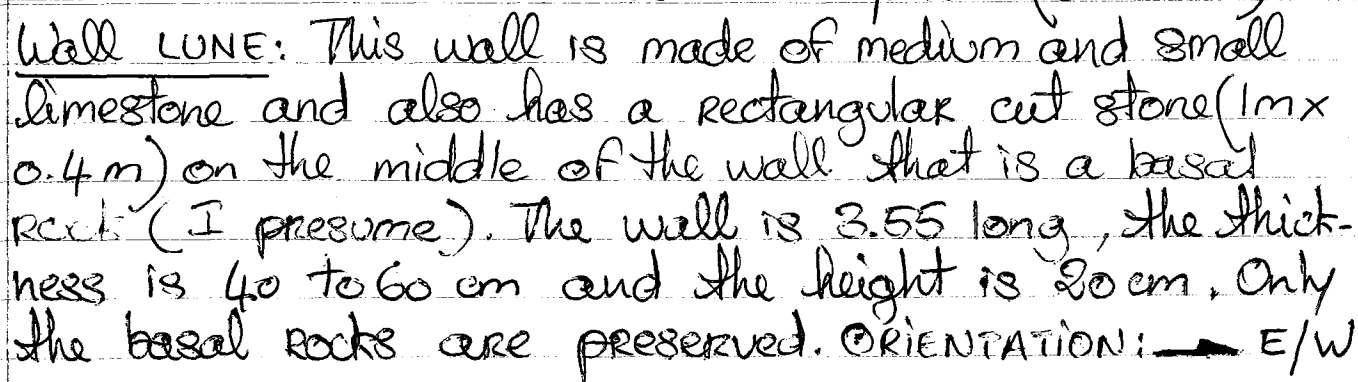 Wall LUNE: This wall is made of medium and small
limestone and also has a Rectangular cut stone (1m x
0.4 m) on the middle of the wall that is a basal
Rock (I presume). The wall is 3.55 long, the thick-
ness is 40 to 60 cm and the height is 20 cm. Only
the basal Rocks are preserved. ORiENTATiON: → E/W